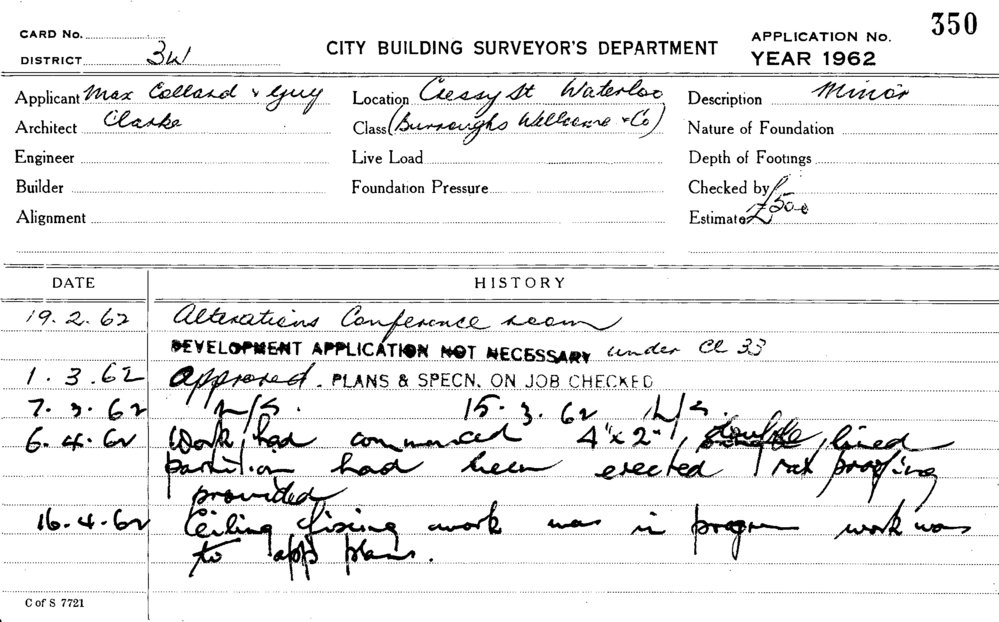 CARD No.
DISTRICT 3W
CITY BUILDING SURVEYOR'S DEPARTMENT
APPLICATION No. 350
YEAR 1962
Applicant Max Colland & Guy
Location Cressy St Waterloo
Description Minor
Architect Clarke
Class (Burroughs Wellcome & Co)
Nature of Foundation
Engineer
Live Load
Depth of Footings
Builder
Foundation Pressure
Checked by
Alignment
Estimate £500
DATE HISTORY
19.2.62 Alterations Conference room
DEVELOPMENT APPLICATION NOT NECESSARY under Cl 33
1.3.62 Approved. PLANS & SPECN. ON JOB CHECKED
7.3.62 N/S. 15.3.62 N/S.
6.4.62 Work had commenced 4"x2", double lined
partition had been erected rat proofing
provided
16.4.62 Ceiling fixing work was in progress work was
to app plans.
C of S 7721